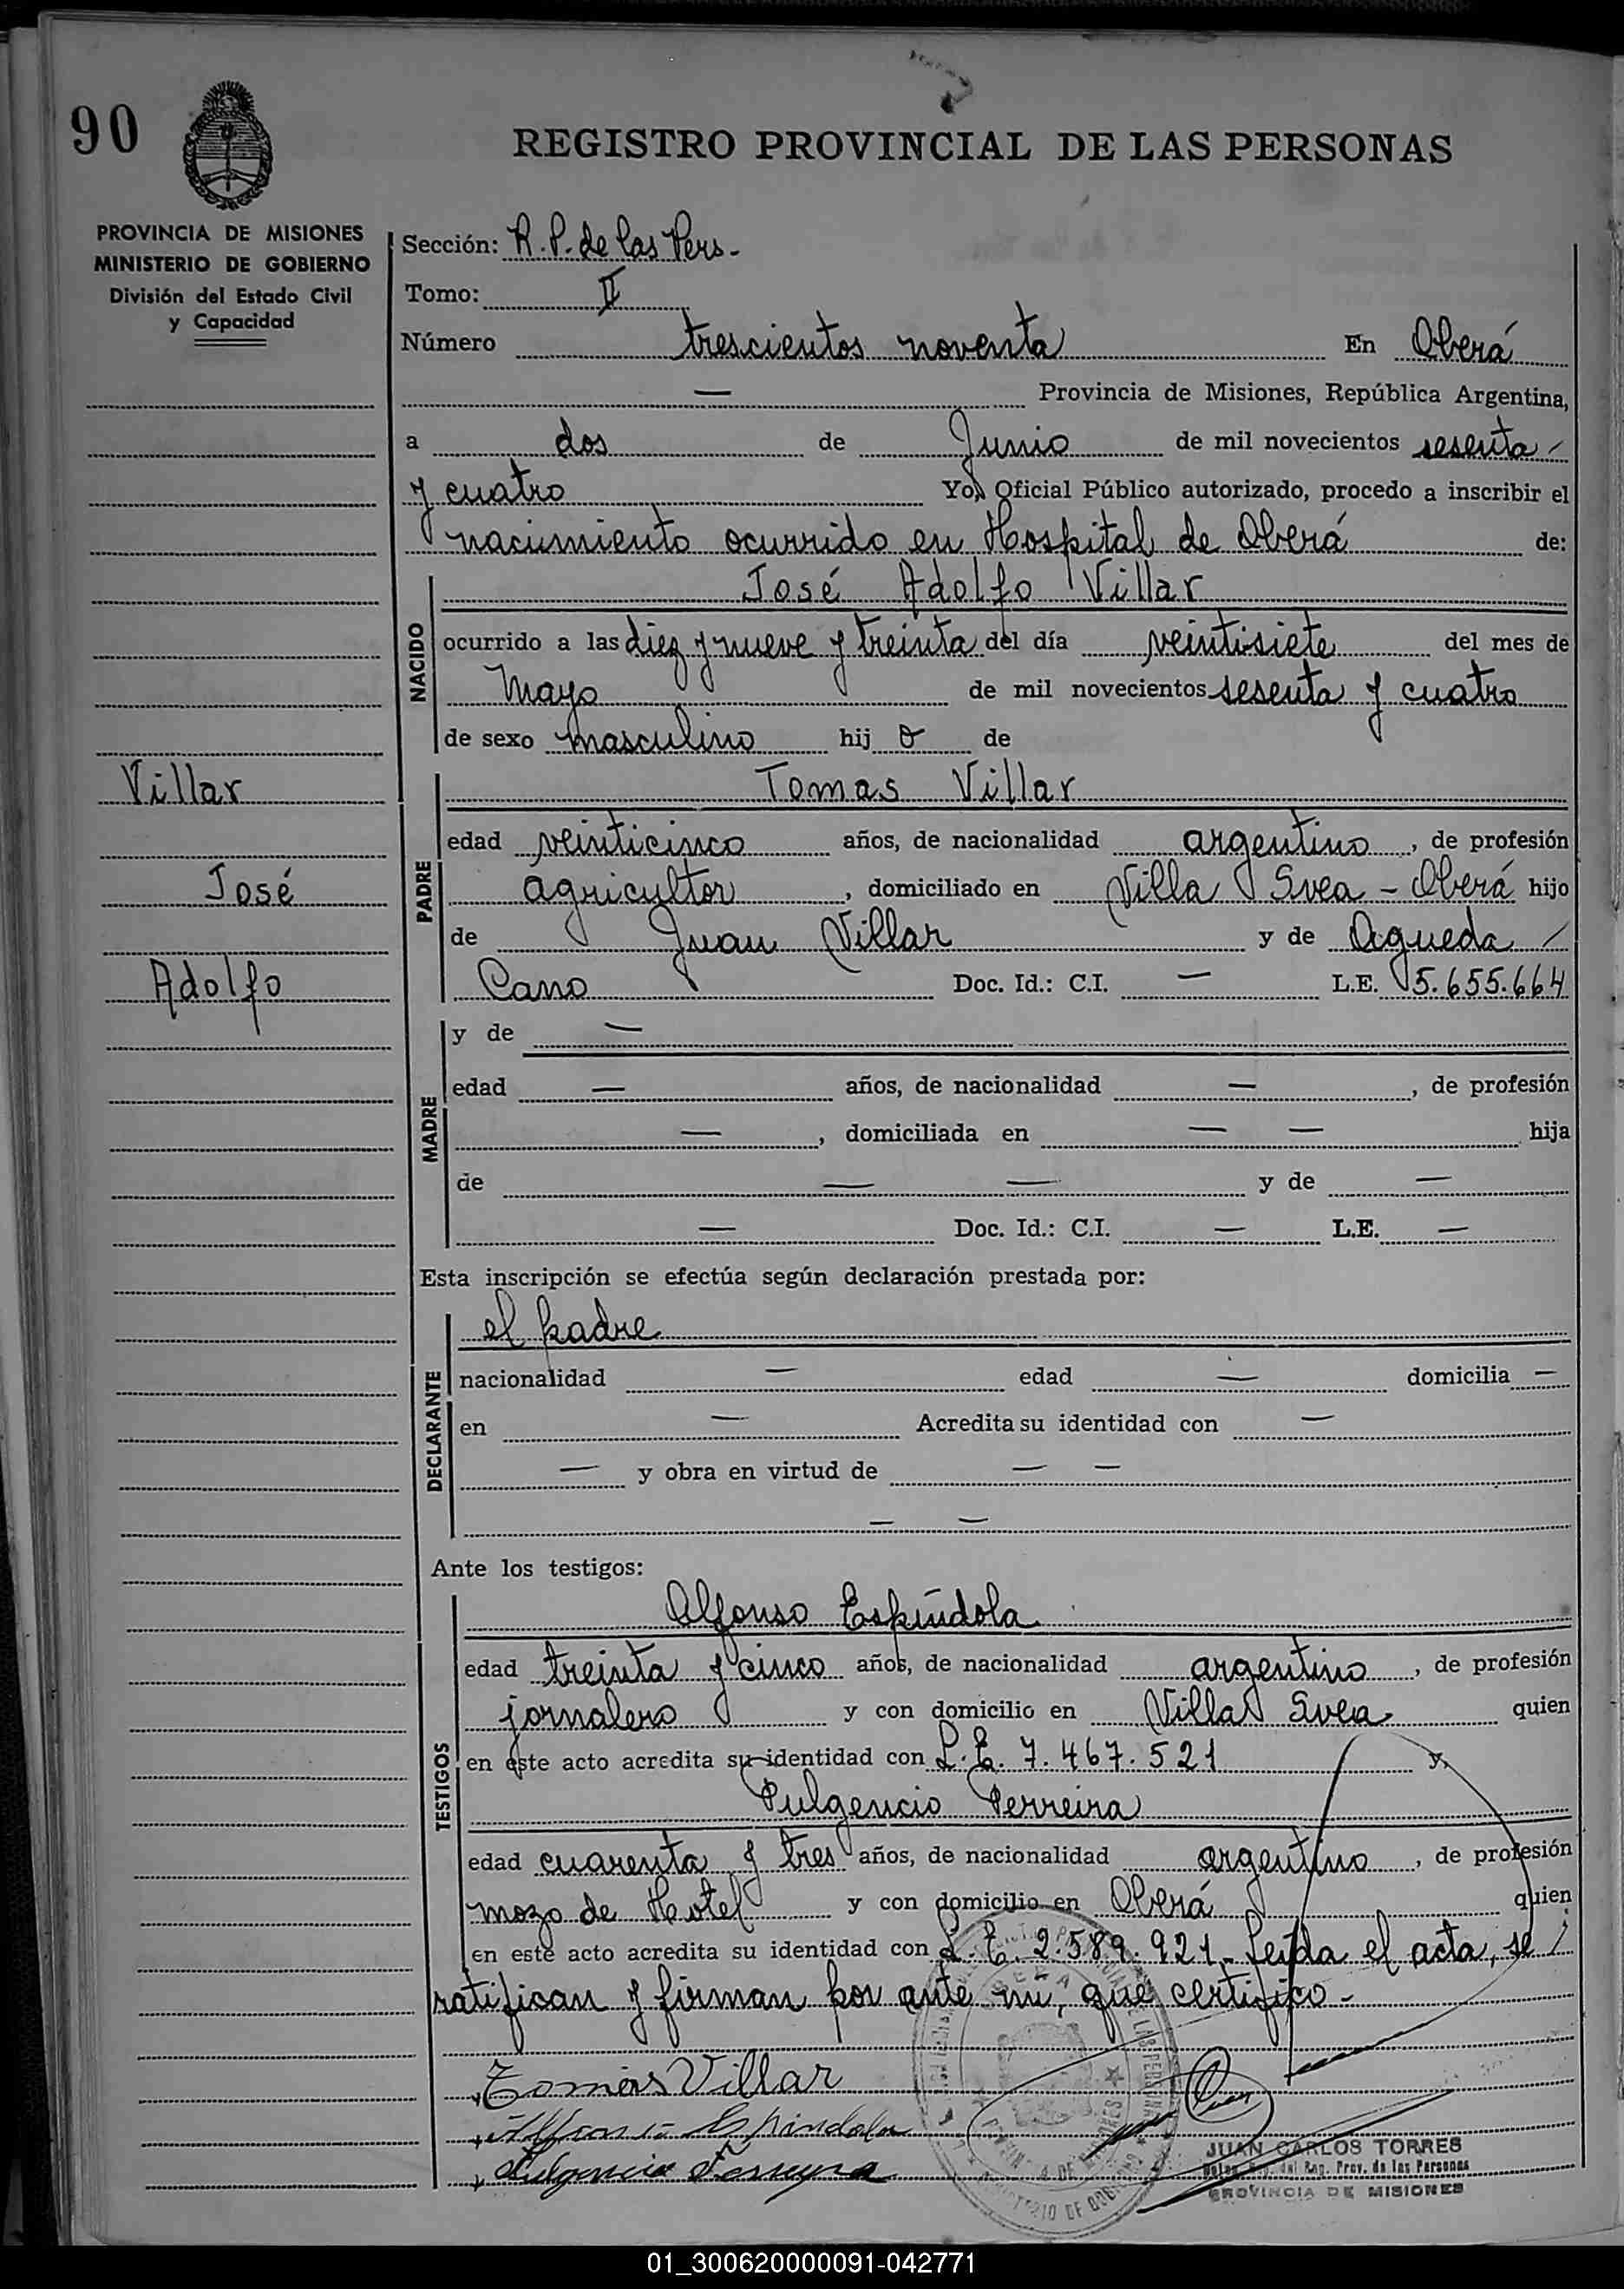 90
REGISTRO PROVINCIAL DE LAS PERSONAS
PROVINCIA DE MISIONES
MINISTERIO DE GOBIERNO
División del Estado Civil
y Capacidad
Sección: R.P. de las Pers.
Tomo: II
Número trescientos noventa En Oberá
— Provincia de Misiones, República Argentina,
a dos de Junio de mil novecientos sesenta
y cuatro Yo, Oficial Público autorizado, procedo a inscribir el
nacimiento ocurrido en Hospital de Oberá de:
José Adolfo Villar
NACIDO
ocurrido a las diez y nueve y treinta del día veintisiete del mes de
Mayo de mil novecientos sesenta y cuatro
de sexo masculino hij o de
Villar
José
Adolfo
Tomas Villar
PADRE
edad veinticinco años, de nacionalidad argentino, de profesión
agricultor, domiciliado en Villa Svea - Oberá hijo
de Juan Villar y de Agueda
Cano Doc. Id.: C.I. — L.E. 5.655.664
MADRE
y de —
edad — años, de nacionalidad —, de profesión
—, domiciliada en — — hija
de — — y de —
— Doc. Id.: C.I. — L.E. —
Esta inscripción se efectúa según declaración prestada por:
el padre
DECLARANTE
nacionalidad — edad — domicilia —
en — Acredita su identidad con —
— y obra en virtud de — —
— —
Ante los testigos:
Alfonso Espíndola
TESTIGOS
edad treinta y cinco años, de nacionalidad argentino, de profesión
jornalero y con domicilio en Villa Svea quien
en este acto acredita su identidad con L.E. 7.467.521 y,
Fulgencio Ferreira
edad cuarenta y tres años, de nacionalidad argentino, de profesión
mozo de Hotel y con domicilio en Oberá quien
en este acto acredita su identidad con L.E. 2.589.921. Leída el acta, se
ratifican y firman por ante mí, que certifico-
Tomás Villar
Alfonso Espindola
Fulgencio Ferreyra
JUAN CARLOS TORRES
Reg. Prov. de las Personas
PROVINCIA DE MISIONES
01_300620000091-042771